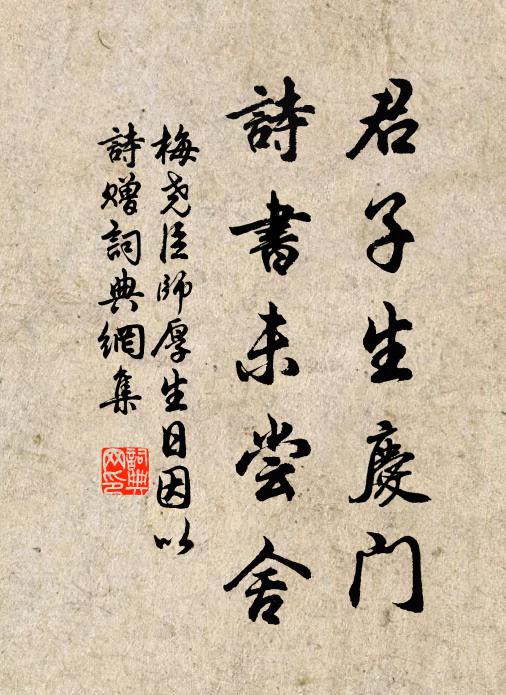 君子生慶門
詩書未嘗舍
梅尧臣師厚生日因以
詩贈詞典網集
詞典
网印